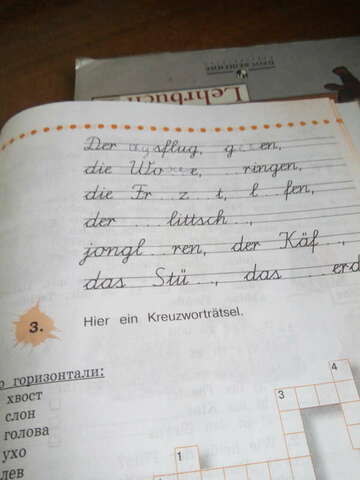 Lehrbuch
Der ausflug, g...en,
die Wo...e, ...ringen,
die Fr...z...t, l...fen,
der ...littsch...,
jongl...ren, der Käf...,
das Stü..., das ...erd
3. Hier ein Kreuzworträtsel.
о горизонтали:
хвост
слон
голова
ухо
лев
4
3
1